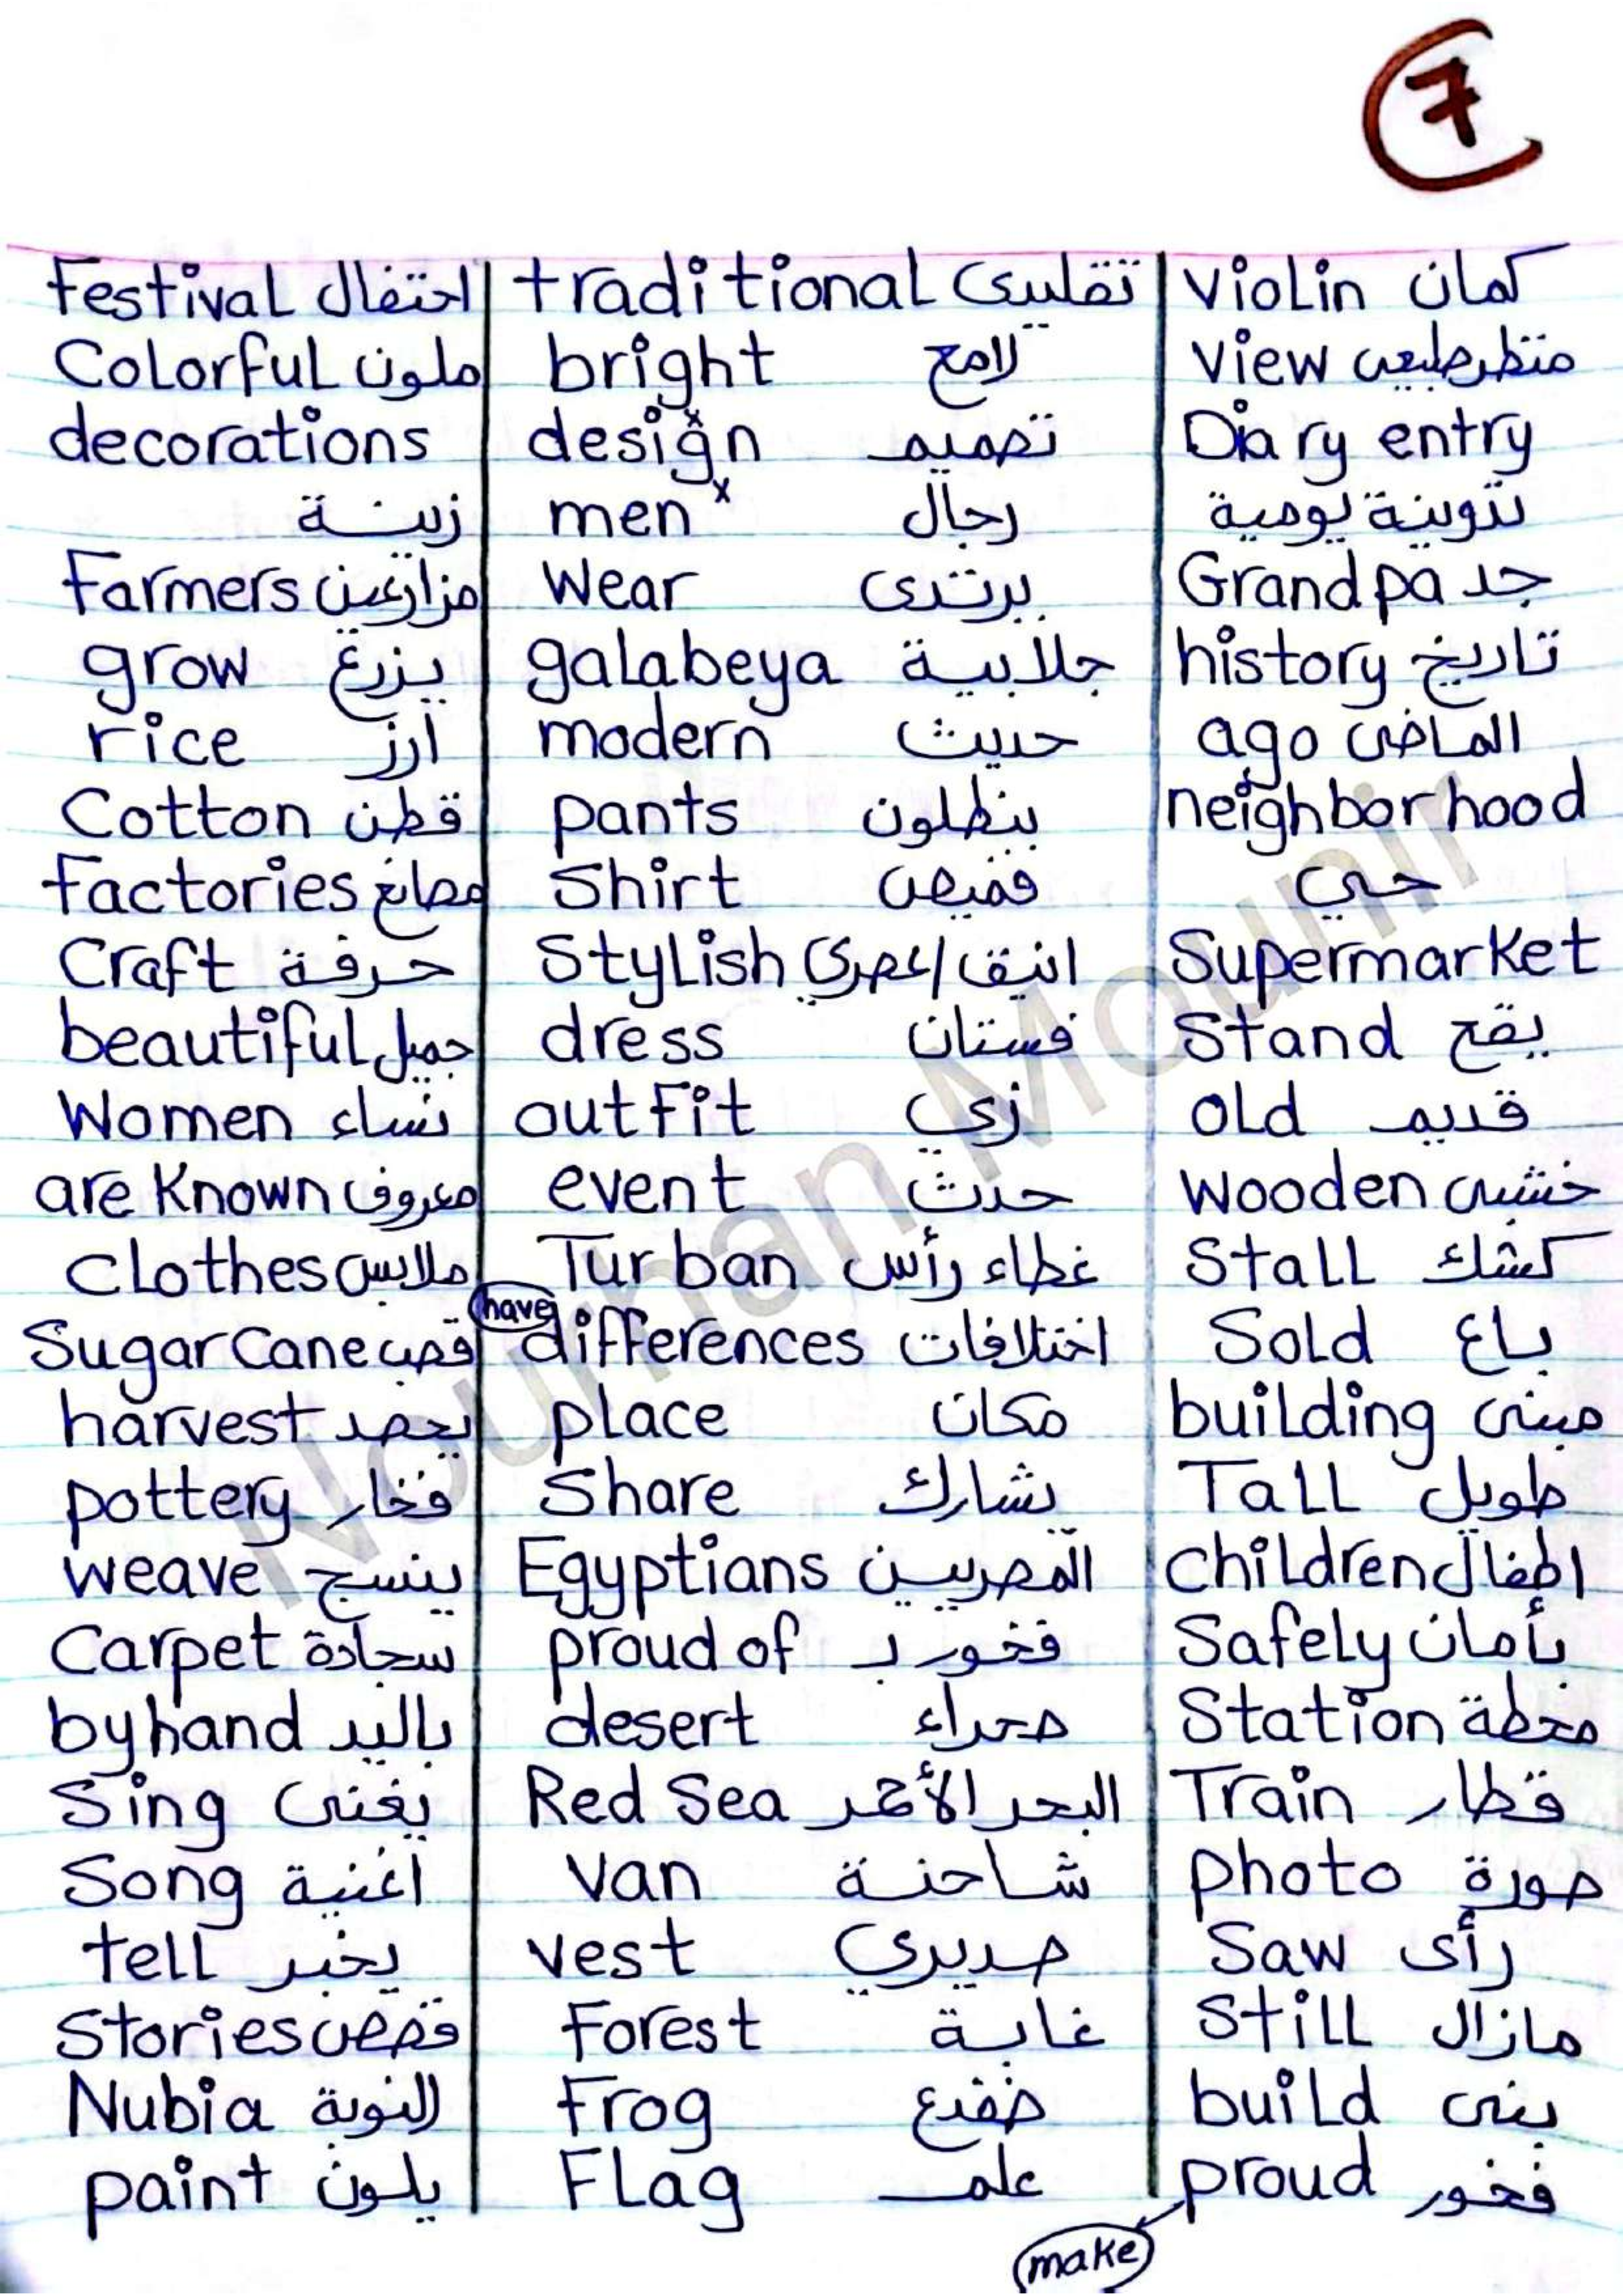 7
Festival احتفال
Colorful ملون
decorations
زينة
Farmers مزارعين
grow يزرع
rice أرز
Cotton قطن
Factories مصانع
Craft حرفة
beautiful جميل
Women نساء
are Known معروف
Clothes ملابس
Sugar Cane قصب
harvest يحصد
pottery فخار
weave ينسج
Carpet سجادة
by hand باليد
Sing يغنى
Song أغنية
tell يخبر
Stories قصص
Nubia النوبة
paint يلون
traditional تقليدى
bright لامع
design تصميم
men رجال
Wear يرتدى
galabeya جلابية
modern حديث
pants بنطلون
Shirt قميص
Stylish انيق/عصري
dress فستان
outfit زي
event حدث
Turban غطاء رأس
have
differences اختلافات
place مكان
Share يشارك
Egyptians المصريين
proud of فخور بـ
desert صحراء
Red Sea البحر الأحمر
van شاحنة
vest صديري
Forest غابة
Frog ضفدع
Flag علم
Violin كمان
View منظر طبيعى
Diary entry
تدوينة يومية
Grandpa جد
history تاريخ
ago الماضى
neighborhood
حي
Supermarket
Stand يقع
old قديم
wooden خشبى
Stall كشك
Sold باع
building مبنى
Tall طويل
Children اطفال
Safely بأمان
Station محطة
Train قطار
photo صورة
Saw رأى
Still مازال
build بنى
proud فخور
make
Nourhan Mounir